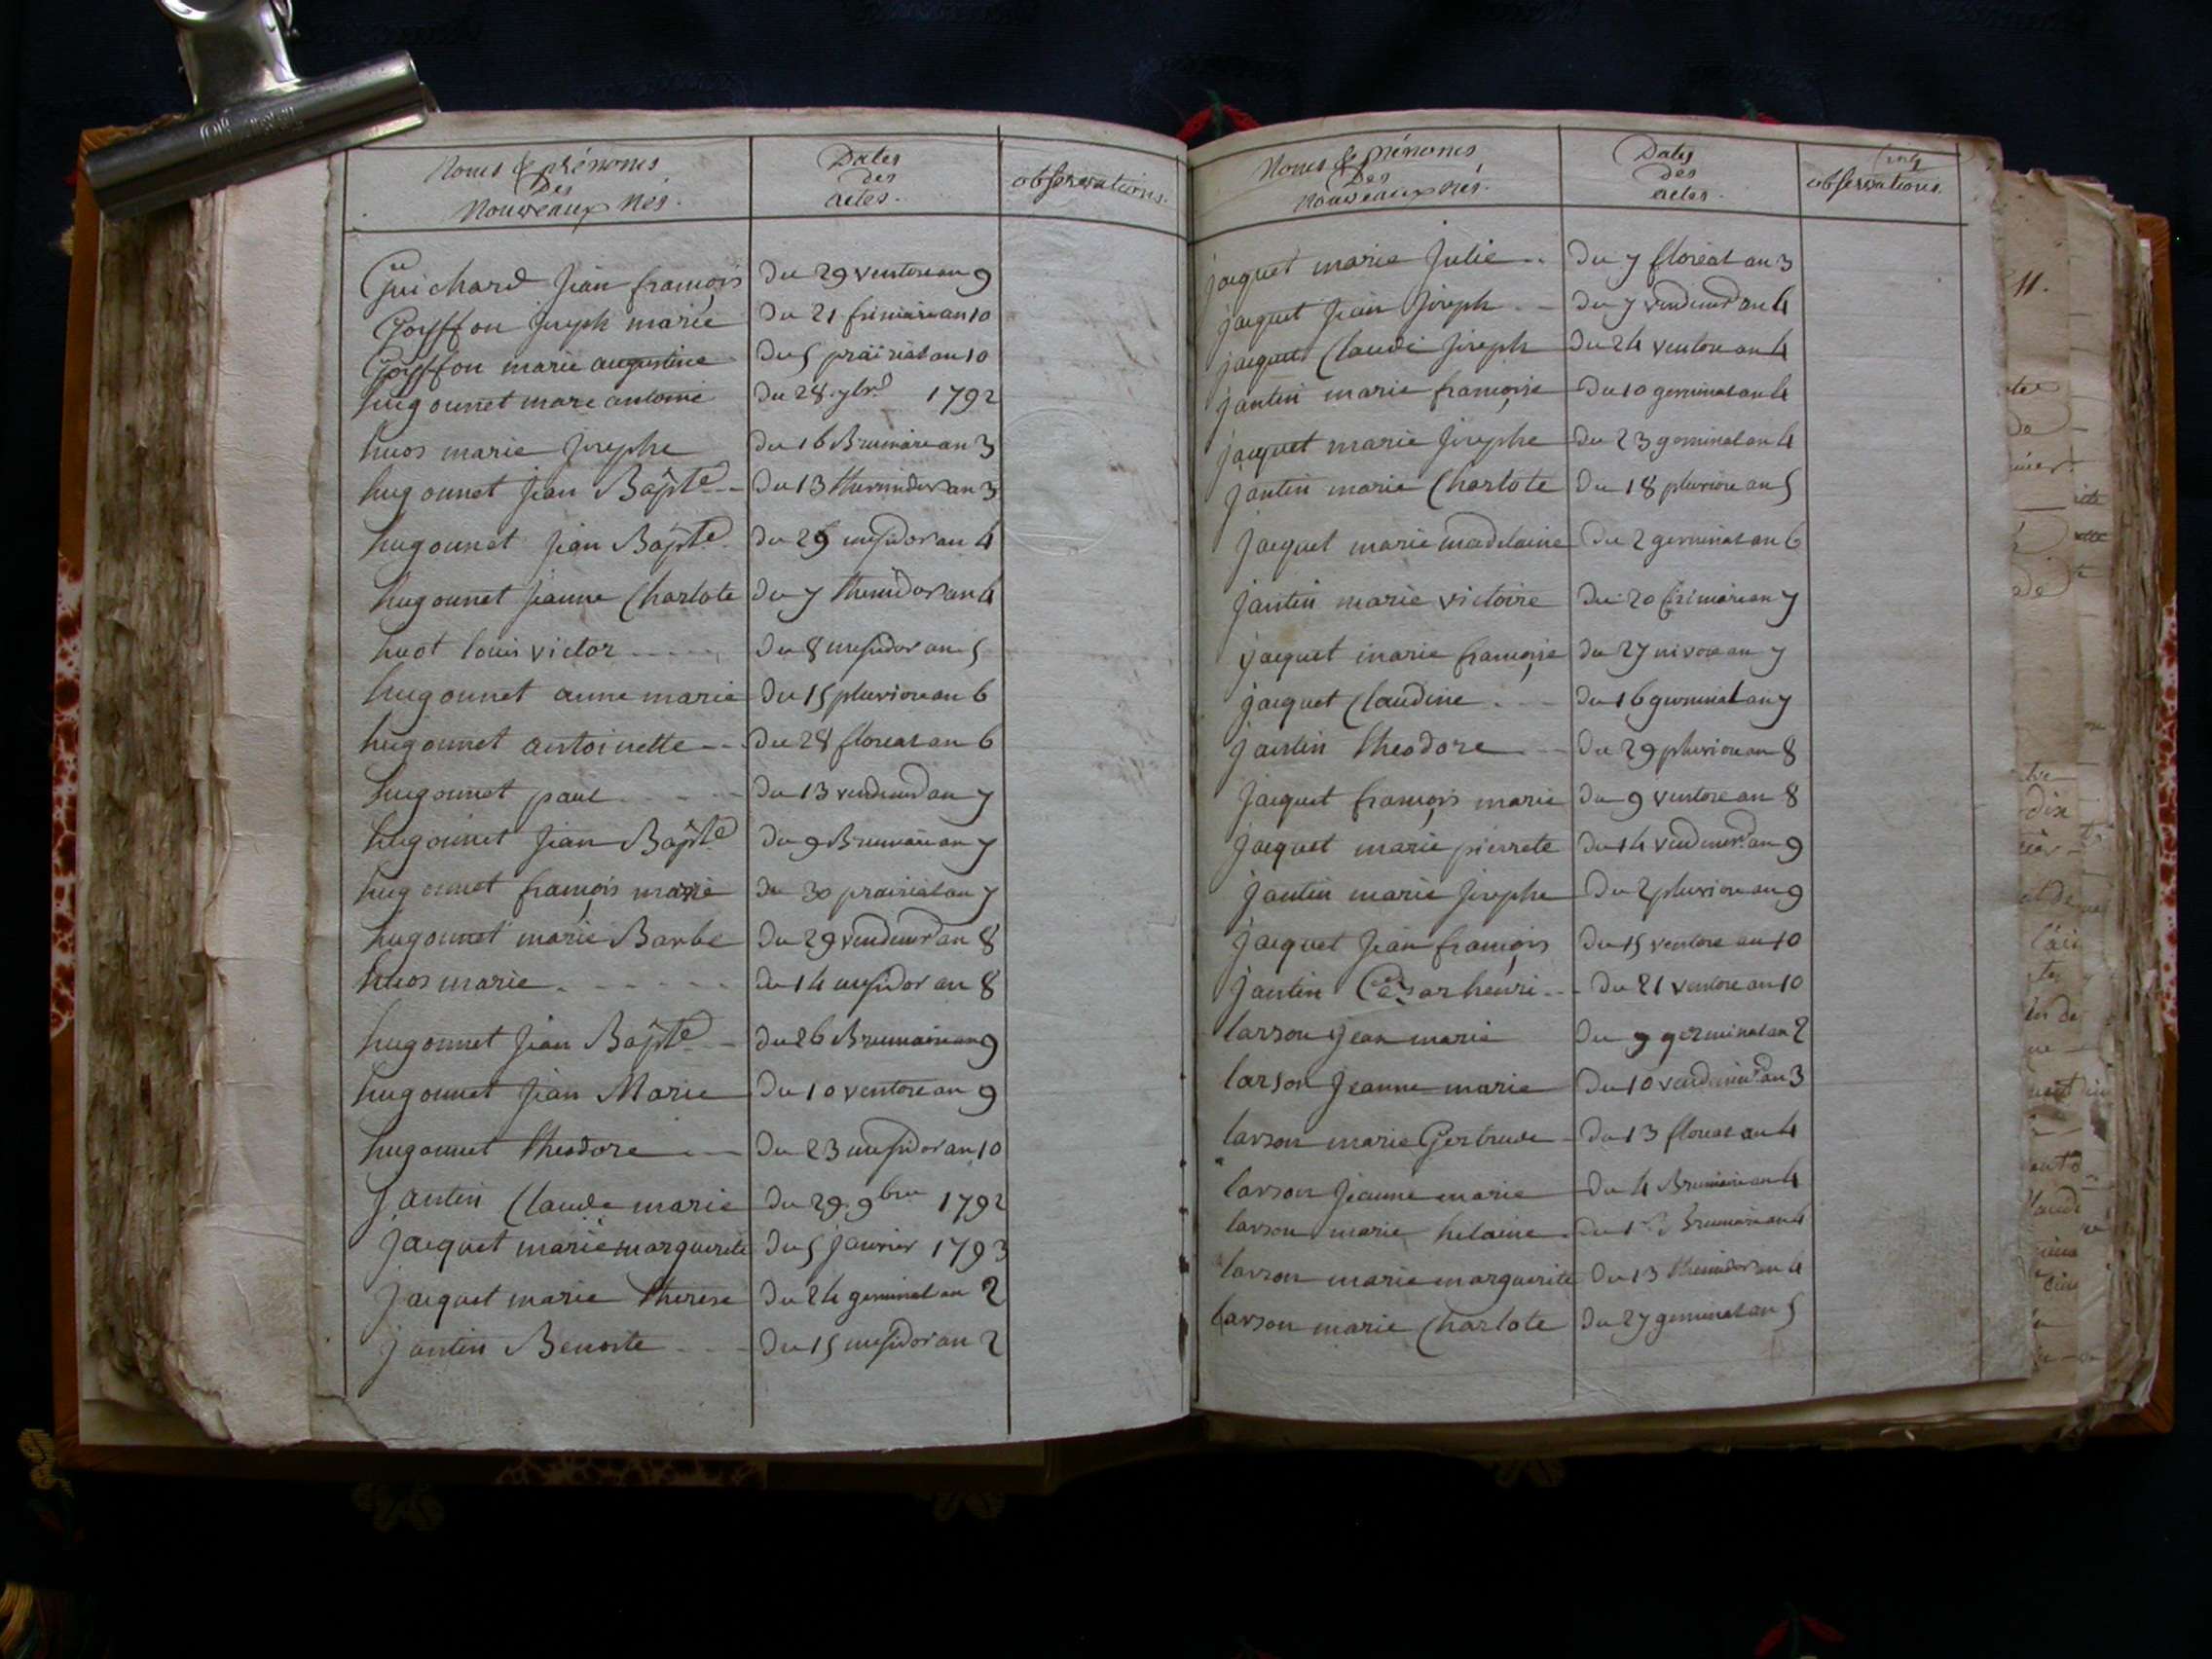 Noms & prénoms
Des
Nouveaux Nés.
Dates
des
actes.
observations.
Guichard Jean françois Du 29 ventose an 9
Goyffon joseph marie Du 21 frimaire an 10
Goyffon marie augustine Du 5 prairial an 10
hugonnet marc antoine Du 28 7bre 1792
huos marie josephe Du 16 Brumaire an 3
hugonnet Jean Bapte Du 13 thermidor an 3
hugonnet Jean Bapte Du 29 messidor an 4
hugonnet Jeanne Charlote Du 7 thermidor an 4
huot louis victor Du 8 messidor an 5
hugonnet anne marie Du 15 pluviose an 6
hugonnet antoinette Du 28 floreal an 6
hugonnet paul Du 13 vendemre an 7
hugonnet Jean Bapte Du 9 Brumaire an 7
hugonnet françois marie Du 30 prairial an 7
hugonnet marie Barbe Du 29 vendemre an 8
huos marie Du 14 messidor an 8
hugonnet Jean Bapte Du 26 Brumaire an 9
hugonnet Jean Marie Du 10 ventose an 9
hugonnet theodore Du 23 messidor an 10
Jantin Claude marie Du 29 9bre 1792
Jacquet marie marguerite Du 5 janvier 1793
Jacquet marie therese Du 24 germinal an 2
jantin Benoite Du 15 messidor an 2
Noms & prénoms
Des
nouveaux nés.
Dates
des
actes.
cinq
observations.
jacquet marie Julie Du 7 floréal an 3
jacquet Jean Joseph Du 7 vendemre an 4
jacquet Claude Joseph Du 24 ventose an 4
jantin marie françoise Du 10 germinal an 4
jacquet marie josephe Du 23 germinal an 4
jantin marie Charlote Du 18 pluviose an 5
jacquet marie madelaine Du 2 germinal an 6
jantin marie victoire Du 20 frimaire an 7
jacquet marie françoise du 27 nivose an 7
jacquet Claudine Du 16 germinal an 7
jantin theodore Du 29 pluviose an 8
jacquet françois marie Du 9 ventose an 8
jacquet marie pierrete Du 14 vendemre an 9
jantin marie josephe Du 2 pluviose an 9
jacquet Jean françois Du 15 ventose an 10
jantin Cesar henri Du 21 ventose an 10
larson Jean marie Du 9 germinal an 2
larson Jeanne marie Du 10 vendemre an 3
larson marie Gertrude Du 13 floreal an 4
larson Jeanne marie Du 4 Brumaire an 4
larson marie helaine Du Brumaire an 4
larson marie marguerite Du 13 thermidor an 4
larson marie Charlote Du 27 germinal an 5
11.